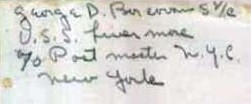 George D. S 1/c
U.S.S. Livermore
c/o Post master N.Y.C.
New York